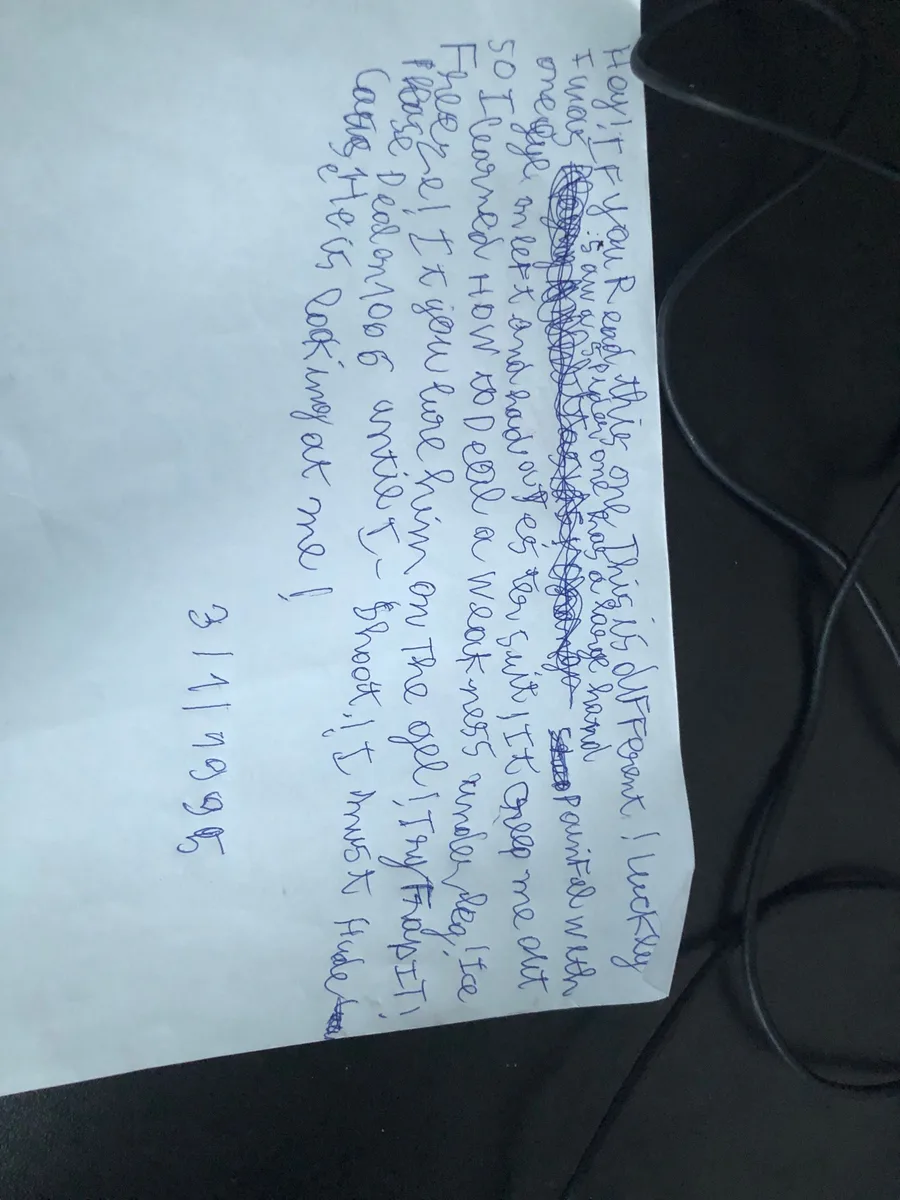 Hey! IF you Read this one This is diFFerent! luckley
I was saw a spider one has a large hand
Painted with
one eye in left and had jester suit, It creep me out
SO I learned HOW to Deal a weakness under leg! Ice
Freeze! If you lure him on The gel! Try trap IT!
Please Dead on 1006 until I- Shoot! I must Hide
Caus He is looking at me!
3/1/1995